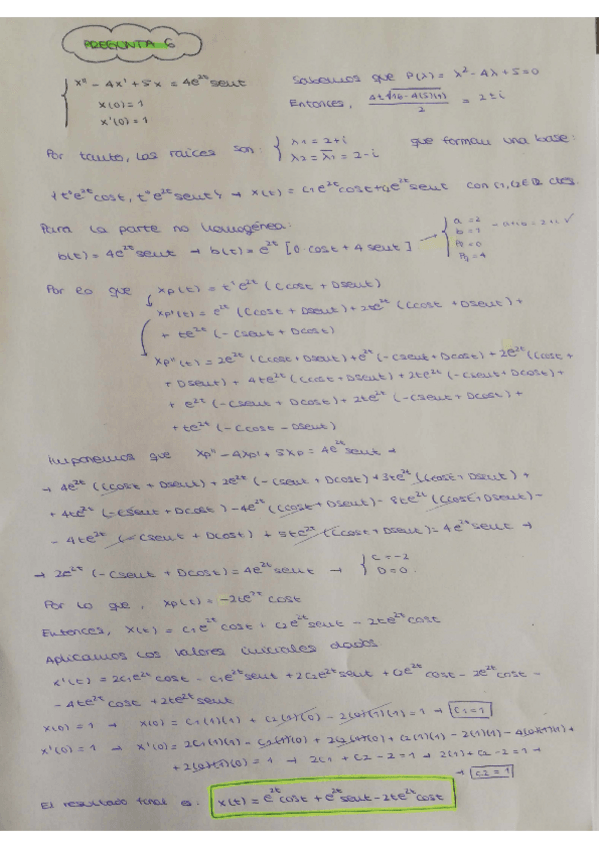 PREGUNTA 6
x'' - 4x' + 5x = 4e^2t sent
x(0) = 1
x'(0) = 1
Sabemos que P(λ) = λ² - 4λ + 5 = 0
Entonces, 4±√16-4(5)(1) / 2 = 2±i
Por tanto, las raíces son: { λ1 = 2+i
λ2 = λ̄1 = 2-i
que forman una base:
{t⁰e^2t cost, t⁰e^2t sent} → x(t) = c1e^2t cost + c2e^2t sent con c1, c2 ∈ ctes.
Para la parte no homogénea:
b(t) = 4e^2t sent → b(t) = e^2t [0·cost + 4 sent] →
a = 2
b = 1
P0 = 0
= 4
= 2+i ✓
Por lo que xp(t) = t¹e^2t (Ccost + Dsent)
xp'(t) = e^2t (Ccost + Dsent) + 2te^2t (Ccost + Dsent) +
+ te^2t (-Csent + Dcost)
xp''(t) = 2e^2t (Ccost + Dsent) + e^2t (-Csent + Dcost) + 2e^2t (Ccost +
+ Dsent) + 4te^2t (Ccost + Dsent) + 2te^2t (-Csent + Dcost) +
+ e^2t (-Csent + Dcost) + 2te^2t (-Csent + Dcost) +
+ te^2t (-Ccost - Dsent)
imponemos que xp'' - 4xp' + 5xp = 4e^2t sent →
→ 4e^2t (Ccost + Dsent) + 2e^2t (-Csent + Dcost) + 3te^2t (Ccost + Dsent) +
+ 4te^2t (-Csent + Dcost) - 4e^2t (Ccost + Dsent) - 8te^2t (Ccost + Dsent) -
- 4te^2t (-Csent + Dcost) + 5te^2t (Ccost + Dsent) = 4e^2t sent →
→ 2e^2t (-Csent + Dcost) = 4e^2t sent → { C = -2
D = 0.
Por lo que, xp(t) = -2te^2t cost
Entonces, x(t) = c1e^2t cost + c2e^2t sent - 2te^2t cost
Aplicamos los valores iniciales dados
x'(t) = 2c1e^2t cost - c1e^2t sent + 2c2e^2t sent + c2e^2t cost - 2e^2t cost -
- 4te^2t cost + 2te^2t sent
x(0) = 1 → x(0) = c1(1)(1) + c2(1)(0) - 2(0)(1)(1) = 1 → c1 = 1
x'(0) = 1 → x'(0) = 2c1(1)(1) - c1(1)(0) + 2c2(1)(0) + c2(1)(1) - 2(1)(1) - 4(0)(1)(1) +
+ 2(0)(1)(0) = 1 → 2c1 + c2 - 2 = 1 → 2(1) + c2 - 2 = 1 →
→ c2 = 1
El resultado final es: x(t) = e^2t cost + e^2t sent - 2te^2t cost